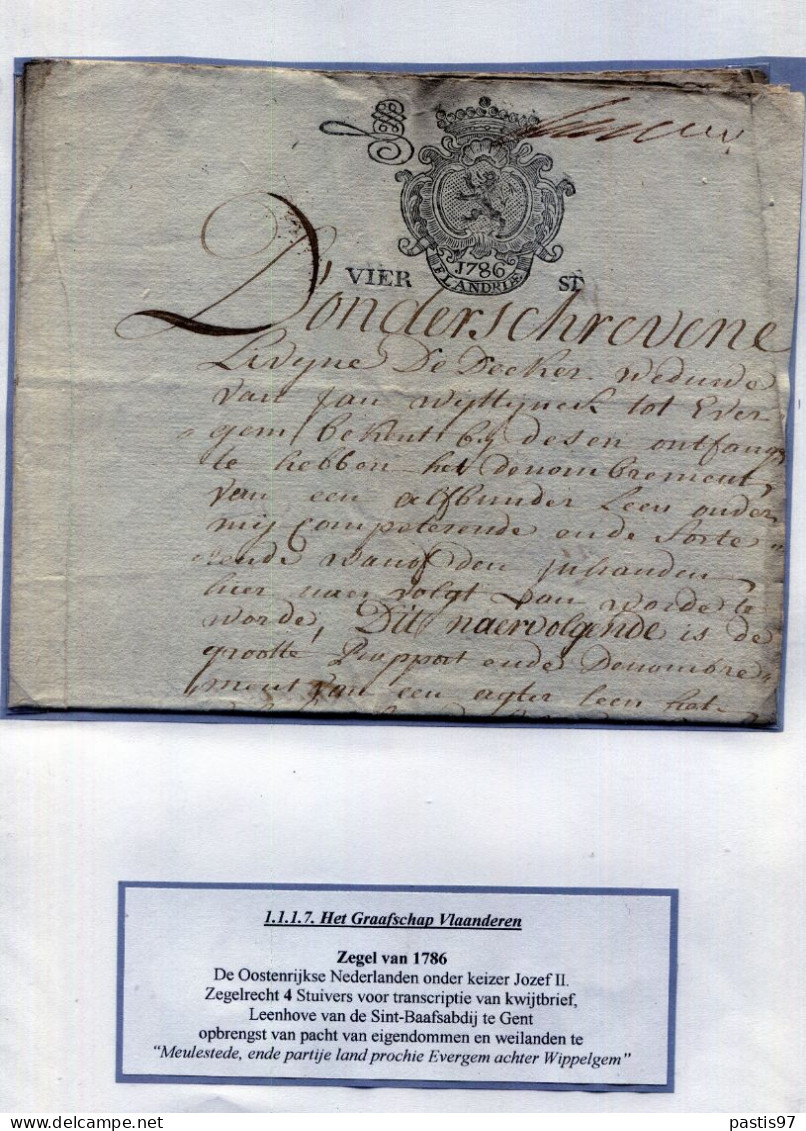 1786
FLANDRIÆ
VIER ST
D'onderschrevene
Livyne De Decker wedurwe
van Jan tot Ever-
gem bekent by desen ontfang
te hebben het denombrement
van een alfbunder Leen onder
mij Competerende ende Sorte-
rende den
hier naer volgt van worde te
worde, Dit naervolgende is de
grootte Rapport ende Denombre-
ment van een agter leen
1.1.1.7. Het Graafschap Vlaanderen
Zegel van 1786
De Oostenrijkse Nederlanden onder keizer Jozef II.
Zegelrecht 4 Stuivers voor transcriptie van kwijtbrief,
Leenhove van de Sint-Baafsabdij te Gent
opbrengst van pacht van eigendommen en weilanden te
"Meulestede, ende partije land prochie Evergem achter Wippelgem"
pastis97